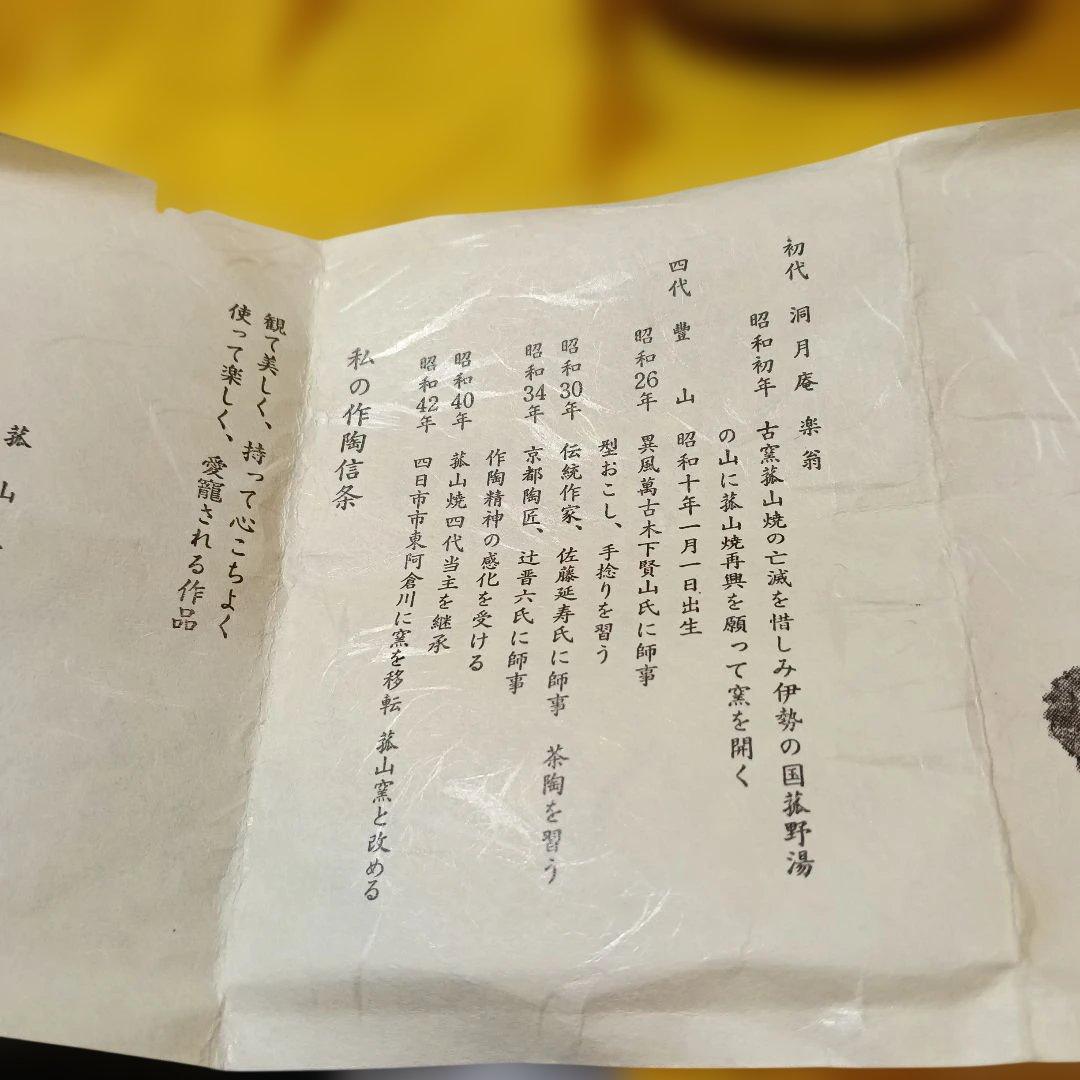 初代 洞月庵 楽翁
昭和初年 古窯菰山焼の亡滅を惜しみ伊勢の国菰野湯
の山に菰山焼再興を願って窯を開く
四代 豊山 昭和十年一月一日出生
昭和26年 異風萬古木下賢山氏に師事
型おこし、手捻りを習う
昭和30年 伝統作家、佐藤延寿氏に師事 茶陶を習う
昭和34年 京都陶匠、辻晋六氏に師事
作陶精神の感化を受ける
昭和40年 菰山焼四代当主を継承
昭和42年 四日市市東阿倉川に窯を移転 菰山窯と改める
私の作陶信条
観て美しく、持って心こちよく
使って楽しく、愛寵される作品
菰山